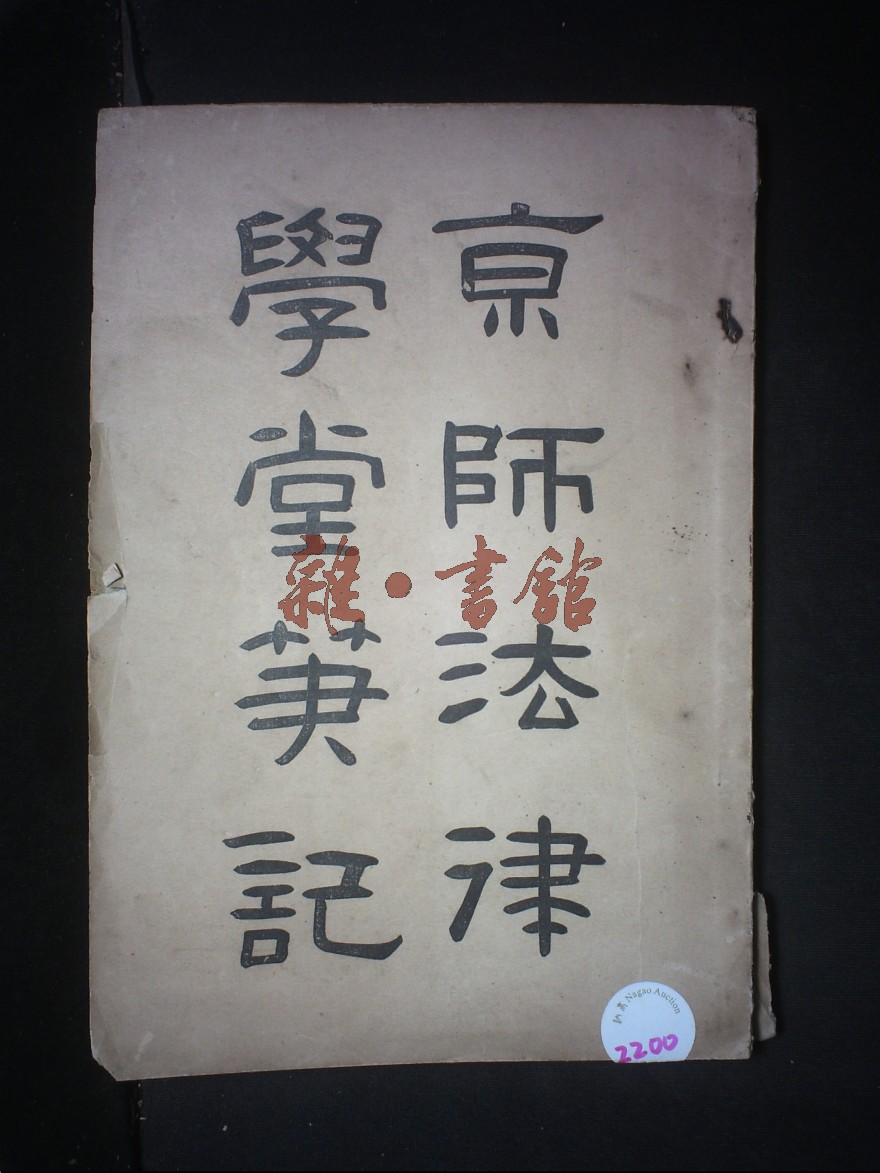 京師法律
學堂筆記
雜·書館
Nagao Auction
2200